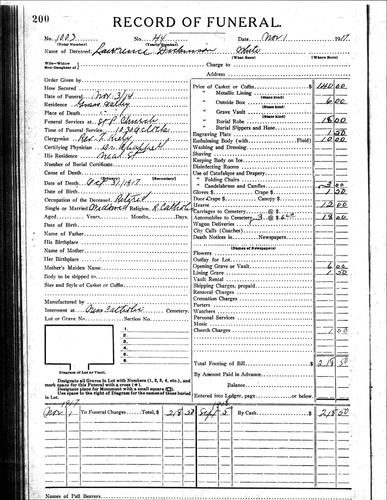 200
RECORD OF FUNERAL.
No. 1003 No. 44 Date, Nov 1 1917.
(Total Number) (Yearly Number)
Name of Deceased, Lawrence White
(What Race) (Where Born)
Wife—Widow
Son—Daughter of Charge to
Address
Order Given by
How Secured
Date of Funeral Nov 3/14
Residence Grass Valley
Place of Death
Funeral Services at St P. Church
Time of Funeral Service 10:30 o'clock
Clergyman
Certifying Physician Dr. Chappell
His Residence Neal St
Number of Burial Certificate
Cause of Death
Date of Death Oct 31, 1917
Occupation of the Deceased Retired
Single or Married Religion R. Catholic
Aged Years, Months, Days.
Date of Birth
Name of Father
His Birthplace
Name of Mother
Her Birthplace
Mother's Maiden Name
Body to be shipped to
Size and Style of Casket or Coffin
Manufactured by
Interment at New Catholic Cemetery.
Lot or Grave No. Section No.
1.
2.
3.
4.
5.
6.
Diagram of Lot or Vault.
Designate all Graves in Lot with Numbers (1, 2, 3, 4, etc.), and
mark space for this Funeral with a cross (+).
Designate place for Monument with a small square (□).
Use space in the right of Diagram for the names of those buried
in Lot.
Price of Casket or Coffin $ 140 00
" Metallic Lining
(State kind)
" Outside Box 6 00
(State kind)
" Grave Vault
(State kind)
" Burial Robe 18 00
" Burial Slippers and Hose
Engraving Plate 1 50
Embalming Body (with Fluid) 10 00
Washing and Dressing
Shaving
Keeping Body on Ice
Disinfecting Rooms
Use of Catafalque and Drapery
" Folding Chairs
" Candelabrum and Candles 3 00
Gloves $ 1 50
Door Crape $ Canopy $
Hearse 12 00
Carriages to Cemetery @ $
Automobiles to Cemetery 3 @ $6.00 18 00
Wagon Deliveries
City Calls (Coaches)
Death Notices in Newspapers
(Names of Newspapers)
Flowers
Outlay for Lot
Opening Grave or Vault 6 00
Lining Grave 1 50
Vault Rental
Shipping Charges, prepaid
Removal Charges
Cremation Charges
Porters
Watchers
Personal Services
Music
Church Charges 1 00
Total Footing of Bill $ 218 50
By Amount Paid in Advance
Balance
Entered into Ledger, page or below.
1917 1918
Nov 1 To Funeral Charges Total, $ 218 50 Sept 5 By Cash $ 218 50
Names of Pall Bearers